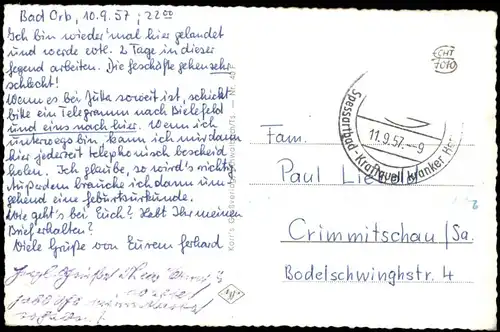 Bad Orb, 10.9.57; 22⁰⁰
Ich bin wieder'mal hier gelandet
und werde evtl. 2 Tage in dieser
Gegend arbeiten. Die Geschäfte gehen sehr
schlecht!
Wenn es bei Jutta soweit ist, schickt
bitte ein Telegramm nach Bielefeld
und eins nach hier. Wenn ich
unterwegs bin kann ich mir dann
hier jederzeit telephonisch bescheid
holen. Ich glaube, so wird's richtig.
Außerdem brauche ich dann um-
gehend eine Geburtsurkunde.
Wie geht's bei Euch? Habt Ihr meinen
Brief erhalten?
Viele Grüße von Eurem Gerhard
CHT
7070
Spessartbad - Kraftquell kranker
11.9.57.-9
Fam.
Paul
Crimmitschau/Sa.
Bodelschwinghstr. 4